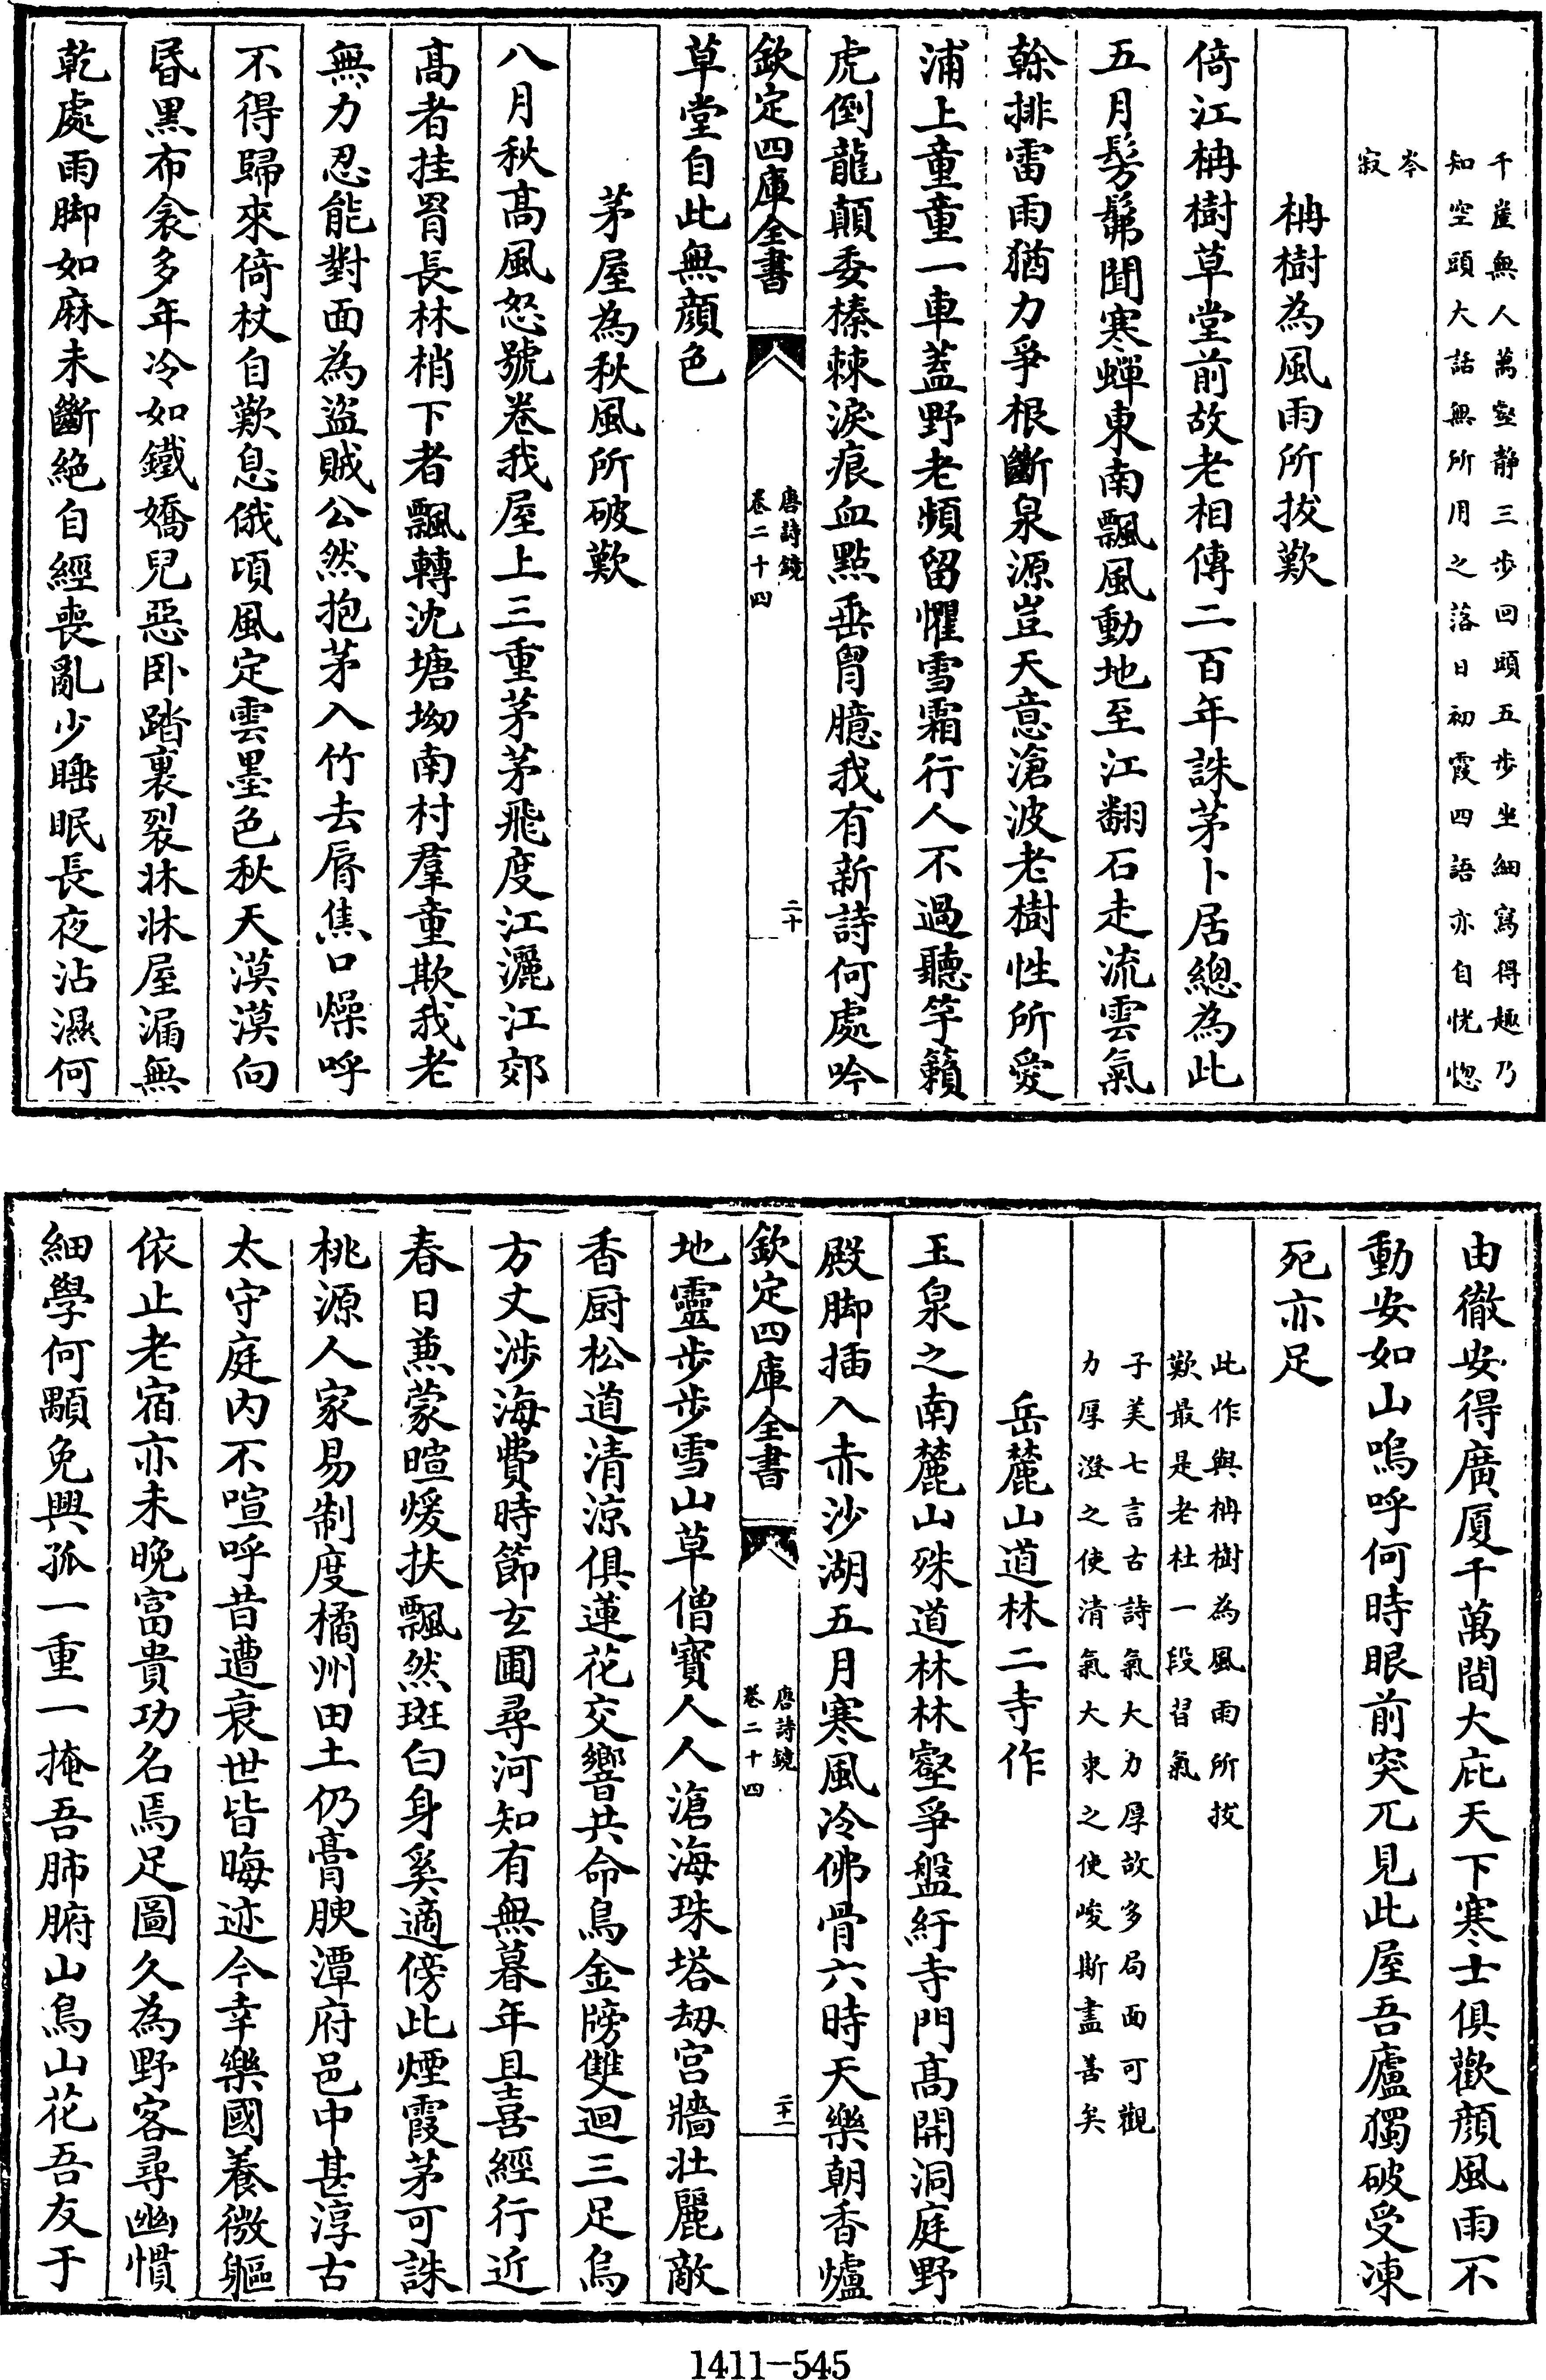 千崖無人萬壑静三步回頭五步坐細寫得趣乃
知空頭大話無所用之落日初霞四語亦自恍惚
岑
寂
柟樹為風雨所拔歎
倚江柟樹草堂前故老相傳二百年誅茅卜居總為此
五月髣髴聞寒蟬東南飄風動地至江翻石走流雲氣
榦排雷雨猶力爭根斷泉源豈天意滄波老樹性所愛
浦上童童一車葢野老頻留懼雪霜行人不過聽竽籟
虎倒龍顛委榛棘淚痕血點垂胷臆我有新詩何處吟
欽定四庫全書
唐詩鏡
卷二十四
二十
草堂自此無顔色
茅屋為秋風所破歎
八月秋髙風怒號卷我屋上三重茅茅飛度江灑江郊
髙者挂罥長林梢下者飄轉沈塘坳南村羣童欺我老
無力忍能對面為盜賊公然抱茅入竹去脣焦口燥呼
不得歸來倚杖自歎息俄頃風定雲墨色秋天漠漠向
昬黒布衾多年冷如鐵嬌兒惡卧踏裏裂牀牀屋漏無
乾處雨脚如麻未斷絶自經喪亂少睡眠長夜沾濕何
由徹安得廣厦千萬間大庇天下寒士俱歡顔風雨不
動安如山嗚呼何時眼前突兀見此屋吾廬獨破受凍
死亦足
此作與柟樹為風雨所拔
歎最是老杜一段習氣
子美七言古詩氣大力厚故多局面可觀
力厚澄之使清氣大束之使峻斯盡善矣
岳麓山道林二寺作
玉泉之南麓山殊道林林壑爭盤紆寺門髙開洞庭野
殿脚插入赤沙湖五月寒風冷佛骨六時天樂朝香爐
欽定四庫全書
唐詩鏡
卷二十四
二十一
地靈步步雪山草僧寳人人滄海珠塔刼宫牆壯麗敵
香厨松道清涼俱蓮花交響共命鳥金牓雙迴三足烏
方丈涉海費時節玄圃尋河知有無暮年且喜經行近
春日兼蒙暄煖扶飄然斑白身奚適傍此煙霞茅可誅
桃源人家易制度橘州田土仍膏腴潭府邑中甚淳古
太守庭内不喧呼昔遭衰世皆晦迹今幸樂國養微軀
依止老宿亦未晚富貴功名焉足圖久為野客尋幽慣
細學何顒免興孤一重一掩吾肺腑山鳥山花吾友于
1411-545